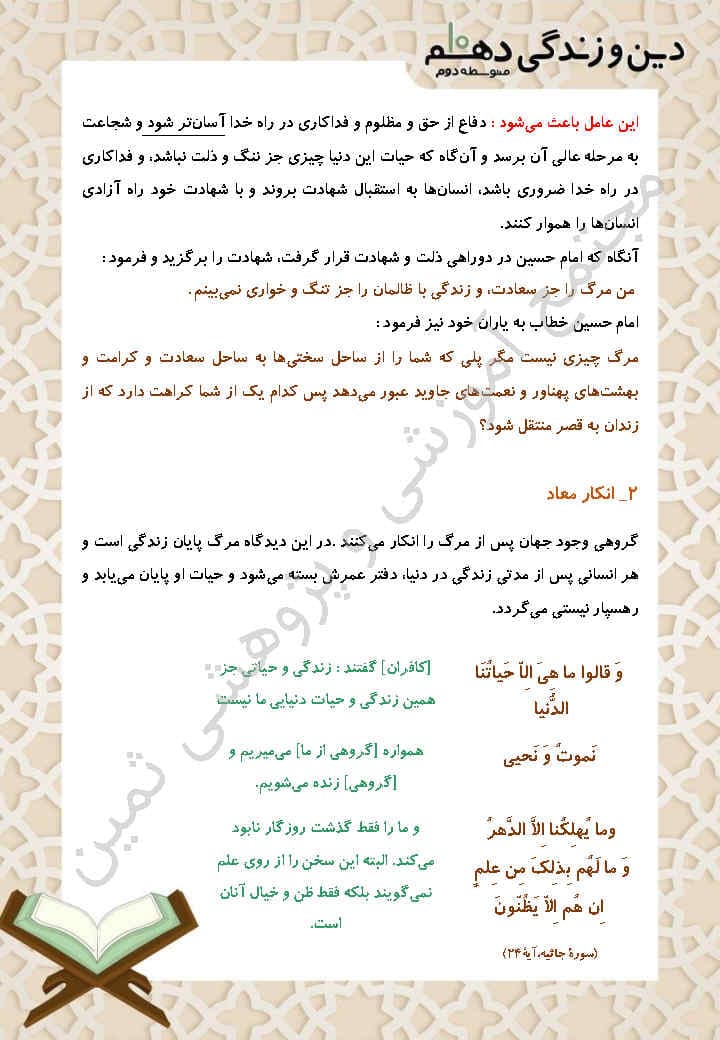 دین و زندگی دهم
متوسطه دوم
این عامل باعث می‌شود : دفاع از حق و مظلوم و فداکاری در راه خدا آسان‌تر شود و شجاعت
به مرحله عالی آن برسد و آن‌گاه که حیات این دنیا چیزی جز ننگ و ذلت نباشد، و فداکاری
در راه خدا ضروری باشد، انسان‌ها به استقبال شهادت بروند و با شهادت خود راه آزادی
انسان‌ها را هموار کنند.
آنگاه که امام حسین در دوراهی ذلت و شهادت قرار گرفت، شهادت را برگزید و فرمود:
من مرگ را جز سعادت، و زندگی با ظالمان را جز تنگ و خواری نمی‌بینم.
امام حسین خطاب به یاران خود نیز فرمود:
مرگ چیزی نیست مگر پلی که شما را از ساحل سختی‌ها به ساحل سعادت و کرامت و
بهشت‌های پهناور و نعمت‌های جاوید عبور می‌دهد پس کدام یک از شما کراهت دارد که از
زندان به قصر منتقل شود؟
۲_ انکار معاد
گروهی وجود جهان پس از مرگ را انکار می‌کنند .در این دیدگاه مرگ پایان زندگی است و
هر انسانی پس از مدتی زندگی در دنیا، دفتر عمرش بسته می‌شود و حیات او پایان می‌یابد و
رهسپار نیستی می‌گردد.
وَ قالوا ما هِیَ اِلّا حَیاتُنَا
الدُّنیا
[کافران] گفتند : زندگی و حیاتی جز
همین زندگی و حیات دنیایی ما نیست
نَموتُ وَ نَحیی
همواره [گروهی از ما] می‌میریم و
[گروهی] زنده می‌شویم.
وما یُهلِکُنا اِلاَّ الدَّهرُ
وَ ما لَهُم بِذلِکَ مِن عِلمٍ
اِن هُم اِلاّ یَظُنّونَ
(سورهٔ جاثیه، آیهٔ ۲۴)
و ما را فقط گذشت روزگار نابود
می‌کند. البته این سخن را از روی علم
نمی‌گویند بلکه فقط ظن و خیال آنان
است.
مجتمع آموزشی و پژوهشی ثمین